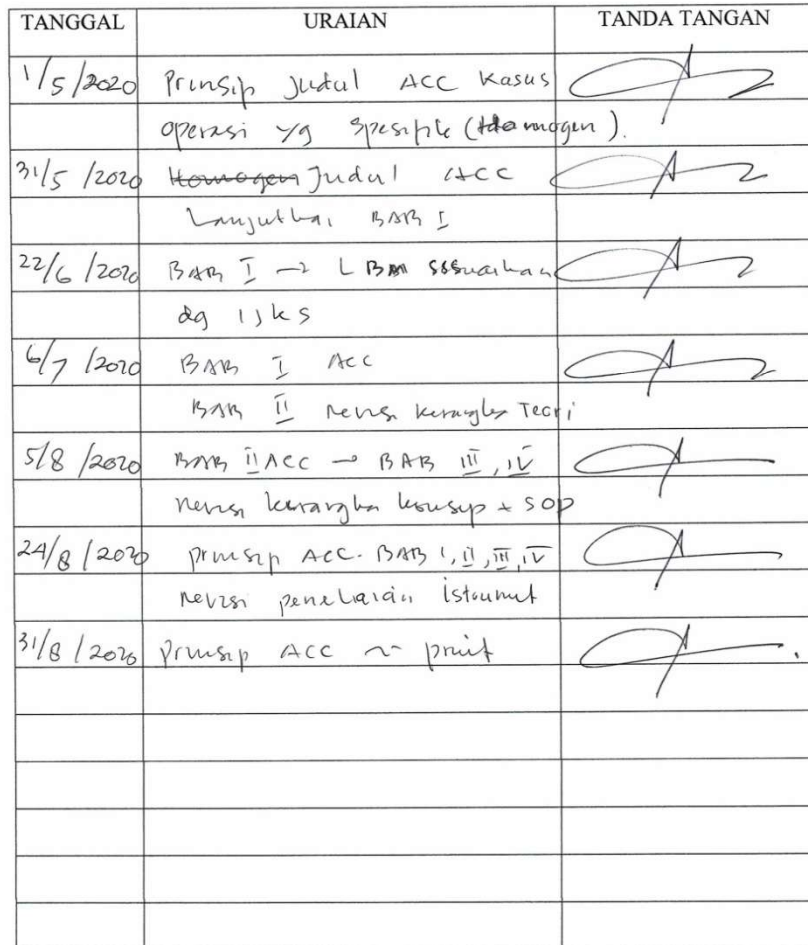 TANGGAL URAIAN TANDA TANGAN
1/5/2020 Prinsip Judul ACC Kasus
operasi yg Spesifik (Homogen).
31/5/2020 Homogen Judul ACC
Lanjutkan BAB I
22/6/2020 BAB I → LBM sesuaikan
dg IJKS
6/7/2020 BAB I ACC
BAB II Revisi kerangka Teori
5/8/2020 BAB II ACC → BAB III, IV
Revisi kerangka konsep + SOP
24/8/2020 Prinsip ACC. BAB I, II, III, IV
Revisi
31/8/2020 Prinsip ACC ~ print